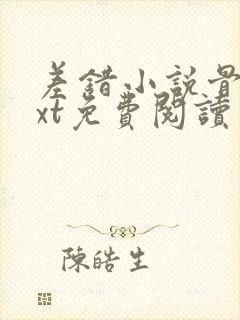 差錯小説骨
xt免費閱讀
陳皓生